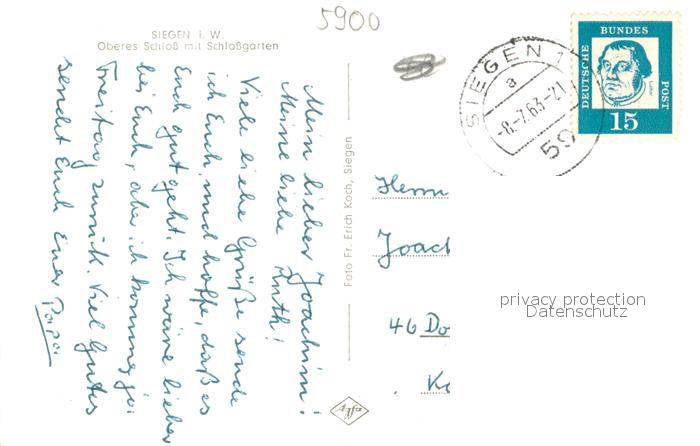 5900
SIEGEN i. W.
Oberes Schloß mit Schloßgarten
Mein lieber Joachim!
Meine liebe Ruth!
Viele liebe Grüße sende
ich Euch, und hoffe, daß es
Euch gut geht. Ich wäre lieber
bei Euch, aber ich komme ja
Freitag zurück. Viel Gutes
sendet Euch Euer
Papa
Foto Fr. Erich Koch, Siegen
Agfa
SIEGEN 1
a
-8.-7.63-21
59
DEUTSCHE BUNDESPOST
15
Herrn
Joach
46 Do
privacy protection
Datenschutz